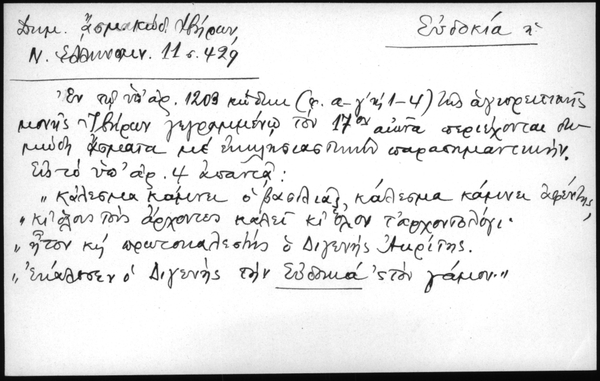 Δημ. ᾄσμα κώδ. Ἰβήρων
Εὐδοκία ἡ
Ν. Ἑλληνομν. 11 σ. 429
Ἐν τῷ ὑπ' ἀρ. 1203 κώδικι (φ. α-γ' ἤ 1-4) τῆς ἁγιορειτικῆς
μονῆς Ἰβήρων γεγραμμένῳ τὸν 17ον αἰῶνα περιέχονται δη
μώδη ᾄσματα μὲ ἐκκλησιαστικὴν παρασημαντικήν.
Εἰς τὸ ὑπ' ἀρ. 4 ἀπαντᾷ:
"Κάλεσμα κάμνει ὁ βασιλιᾶς, κάλεσμα κάμνει ἀφέντης,
"κι' ὅλους τοὺς ἄρχοντες καλεῖ κι' ὅλον τ' ἀρχοντολόγι·
"ἦτον κὴ πρωτοκαλεστὴς ὁ Διγενὴς Ἀκρίτης.
"Ἐκάλεσεν ὁ Διγενὴς τὴν Εὐδοκιά 'ς τὸν γάμον."